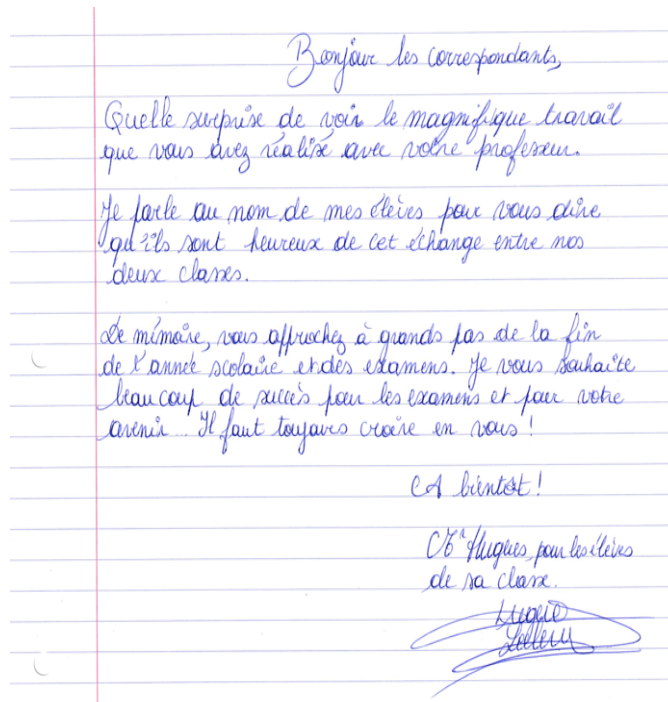 Bonjour les correspondants,
Quelle surprise de voir le magnifique travail
que vous avez réalisé avec votre professeur.
Je parle au nom de mes élèves pour vous dire
qu'ils sont heureux de cet échange entre nos
deux classes.
De mémoire, vous approchez à grands pas de la fin
de l'année scolaire et des examens. Je vous souhaite
beaucoup de succès pour les examens et pour votre
avenir... Il faut toujours croire en vous !
A bientôt !
Hugues, pour les élèves
de sa classe.